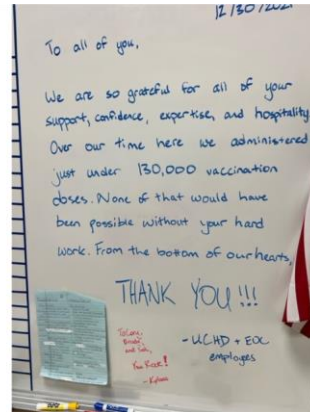 12/30/202
To all of you,
We are so grateful for all of your
support, confidence, expertise, and hospitality
Over our time here we administered
just under 130,000 vaccination
doses. None of that would have
been possible without your hard
work. From the bottom of our hearts,
THANK YOU!!!
- UCHD + EOC
employees
and
You Rock!